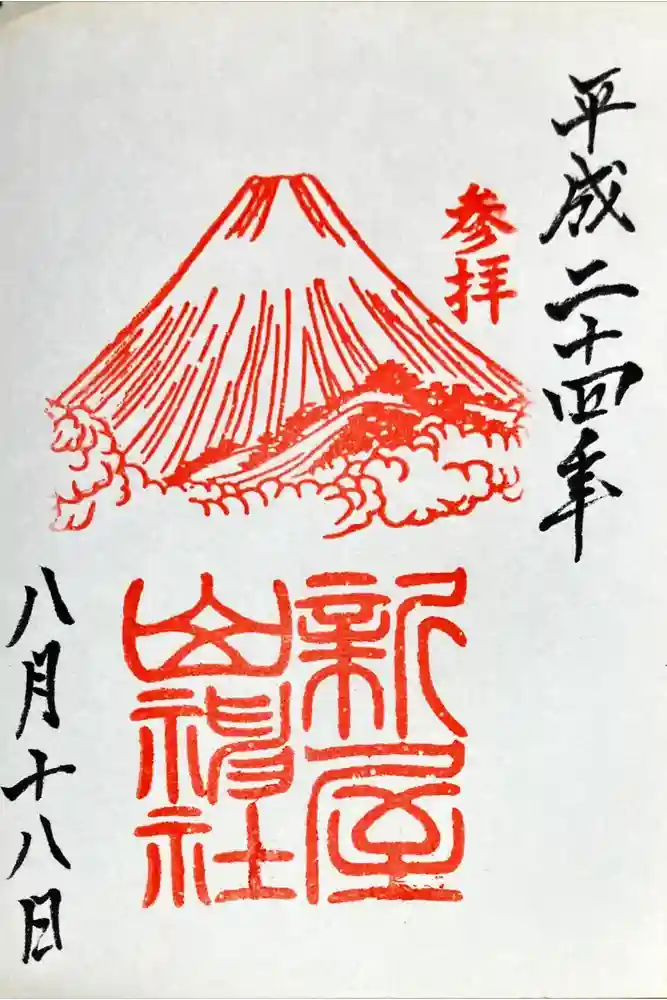 平成二十四年
参拝
新屋
山神社
八月十八日